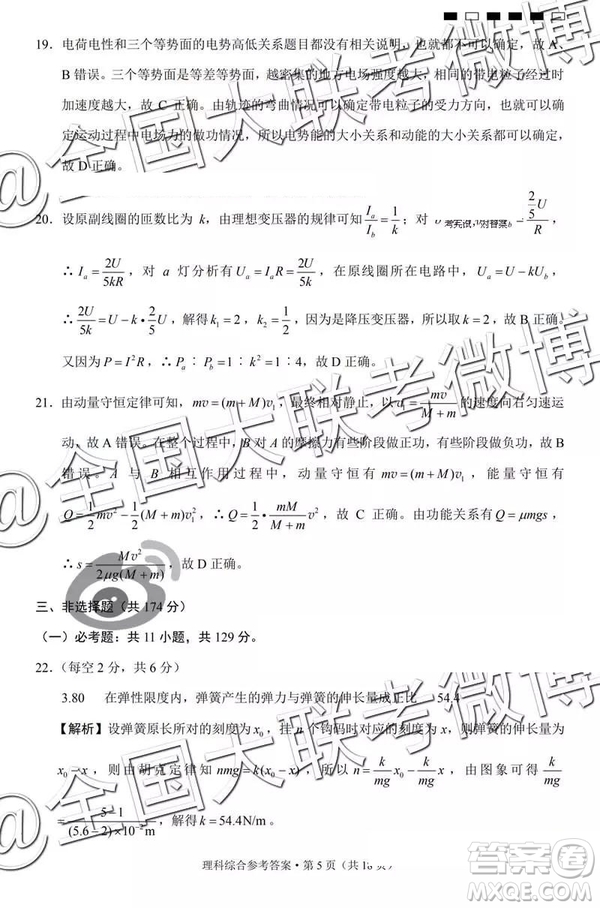 19．电荷电性和三个等势面的电势高低关系题目都没有相关说明，也就都不可以确定，故 A、
B 错误。三个等势面是等差等势面，越密集的地方电场强度越大，相同的带电粒子在此时的
加速度越大，故 C 正确。由轨迹的弯曲情况可以确定带电粒子的受力方向，也就可以确
定运动过程中电场力的做功情况，所以电势能的大小关系和动能的大小关系都可以确定，
故 D 正确。
20．设原副线圈的匝数比为 k，由理想变压器的规律可知 I_a/I_b = 1/k；对 b = (2/5 U)/R，
∴ I_a = 2U/5kR，对 a 灯分析有 U_a = I_a R = 2U/5k，在原线圈所在电路中，U_a = U − kU_b，
∴ 2U/5k = U − k·2/5 U，解得 k₁ = 2，k₂ = 1/2，因为是降压变压器，所以 k = 2，故 C 错误。
又因为 P = I²R，∴ P_a∶P_b = 1∶k² = 1∶4，故 D 正确。
21．由动量守恒定律可知，mv = (m + M)v₁，最终相对静止，以 v₁ = mv/(M + m) 的速度向右匀速运
动，故 A 错误。在整个过程中，B 对 A 的摩擦力有些阶段做正功，有些阶段做负功，故 B
错误。A 与 B 相互作用过程中，动量守恒有 mv = (m + M)v₁，能量守恒有
Q = 1/2 mv² − 1/2 (M + m)v₁²，∴ Q = 1/2 · mM/(M + m) v²，故 C 正确。由功能关系有 Q = μmgs，
∴ s = Mv²/2μg(M + m)，故 D 正确。
三、非选择题（共 174 分）
（一）必考题：共 11 小题，共 129 分。
22．（每空 2 分，共 6 分）
3.80 在弹性限度内，弹簧产生的弹力与弹簧的伸长量成正比 54.4
【解析】设弹簧原长所对的刻度为 x₀，挂 n 个钩码时对应的刻度为 x，则弹簧的伸长量为
x₀ − x，则由胡克定律知 nmg = k(x₀ − x)，所以 n = k/mg x₀ − k/mg x，由图象可得
k/mg = (5 − 1)/((5.6 − 2)×10⁻² m)，解得 k = 54.4N/m。
理科综合参考答案·第 5 页（共 16 页）
@全国大联考微博
@全国大联考微博
@全国大联考微博
答案圈